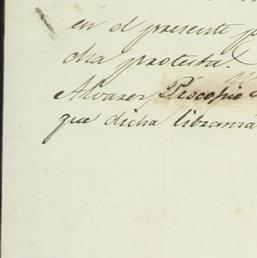 en el presente p
cha protesta.
Alvarez, Procopio
que dicha libranza